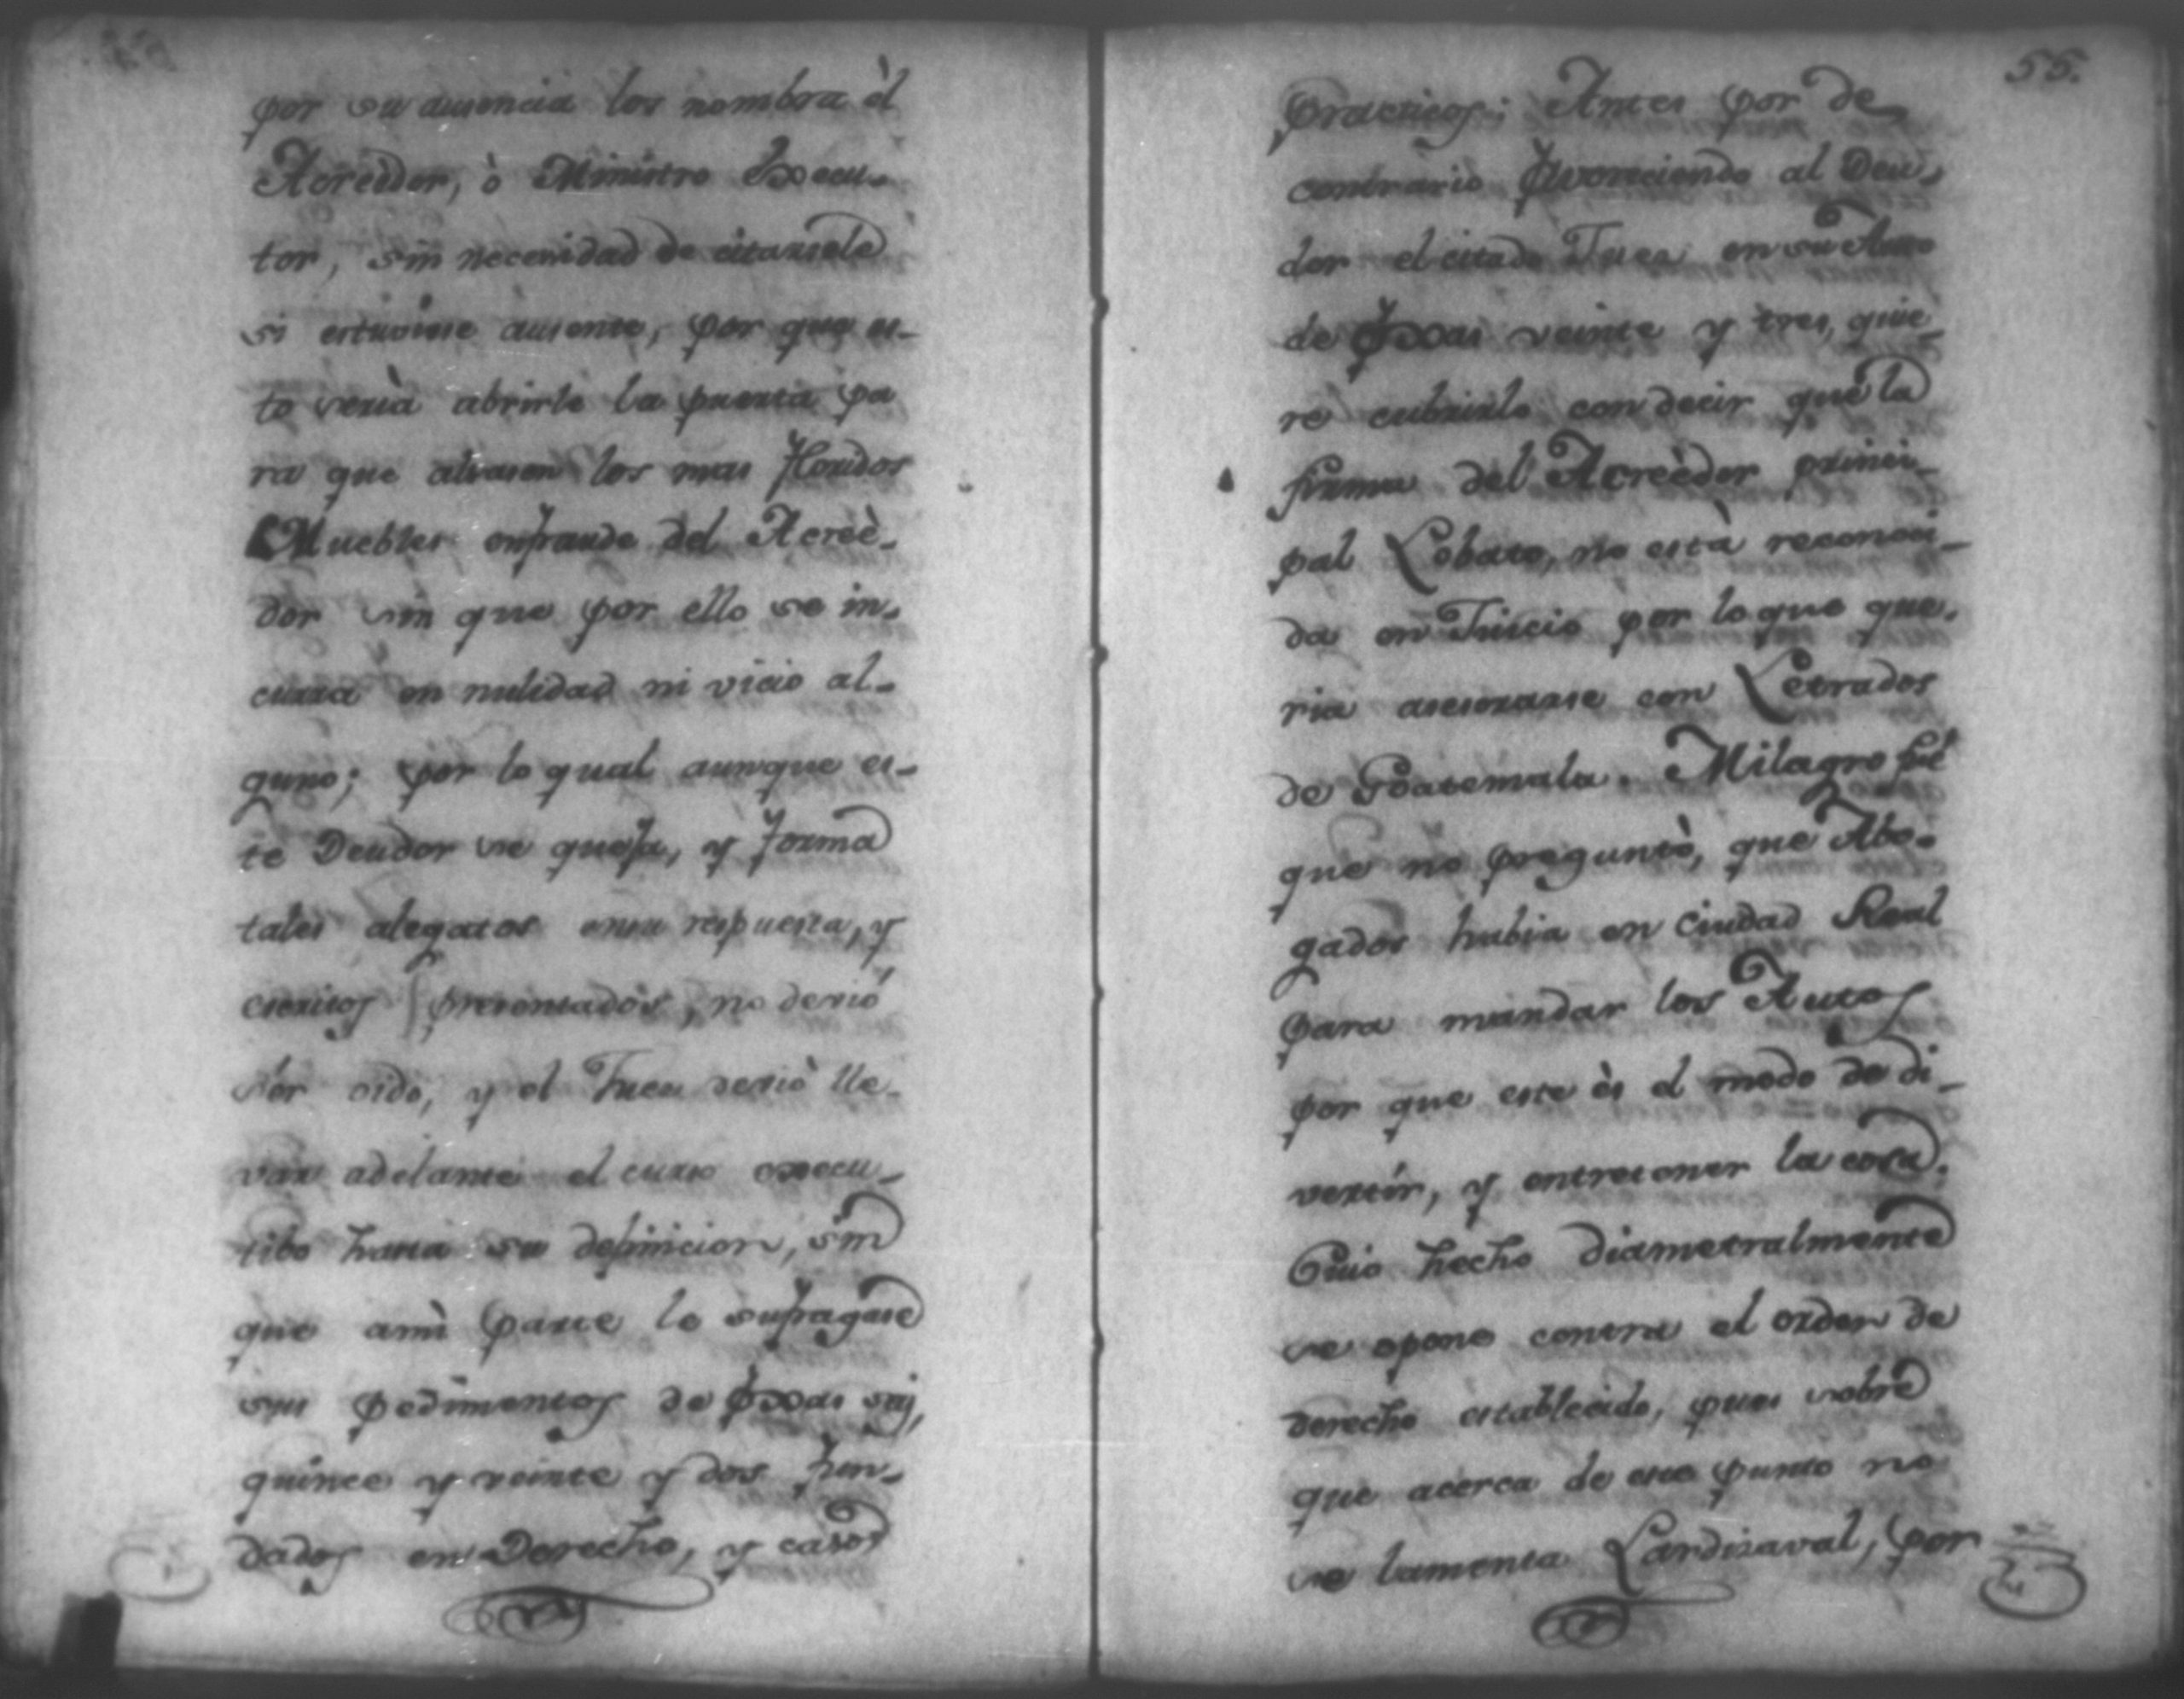 por su ausencia los nombra èl
Acreèdor, ò Ministro Execu-
tor, sin necesidad de citarsele
si estuviese ausente, por que es-
to seria abrirle la puerta pa
ra que alsasen los mas floridos
Muebles enfraude del Acreè-
dor sin que por ello se in-
curra en nulidad ni vicio al-
guno; por lo qual aunque es-
te Deudor se queja, y forma
tales alegatos ensu respuesta, y
escritos presentados, no deviò
ser oido, y el Juez deviò lle-
var adelante el curso execu-
tibo hasta su definicion, sin
que ami parte le sufragase
sus pedimentos de foxas
quince y veinte y dos fun-
dados en Derecho, y casos
55.
practicos; Antes por de
contrario favoreciendo al Deu-
dor el citado Juez en su Auto
de foxas veinte y tres, quie-
re cubrirlo con decir que la
firma del Acreèdor princi-
pal Lobato, no està reconoci-
da en Juicio por lo que que-
ria asesorarse con Letrados
de Goatemala. Milagro fué
que no preguntò, que Abo-
gados habia en Ciudad Real
para mandar los Autos
por que este ès el modo de di-
vertir, y entretener la cosa.
Cuio hecho diametralmente
se opone contra el orden de
derecho establecido, pues sobre
que acerca de este punto no
se lamenta Lardizaval, por